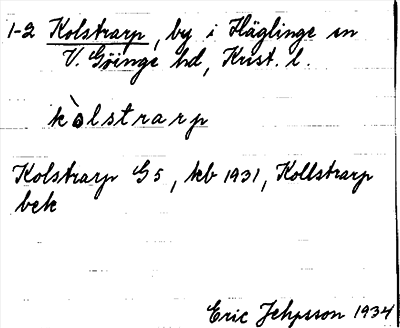 1-2 Kolstrarp, by i Häglinge sn
V. Göinge hd, Krist. l.
kòlstrarp
Kolstrarp G5, kb 1931, Kollstrarp
bek
Eric Jehpsson 1934